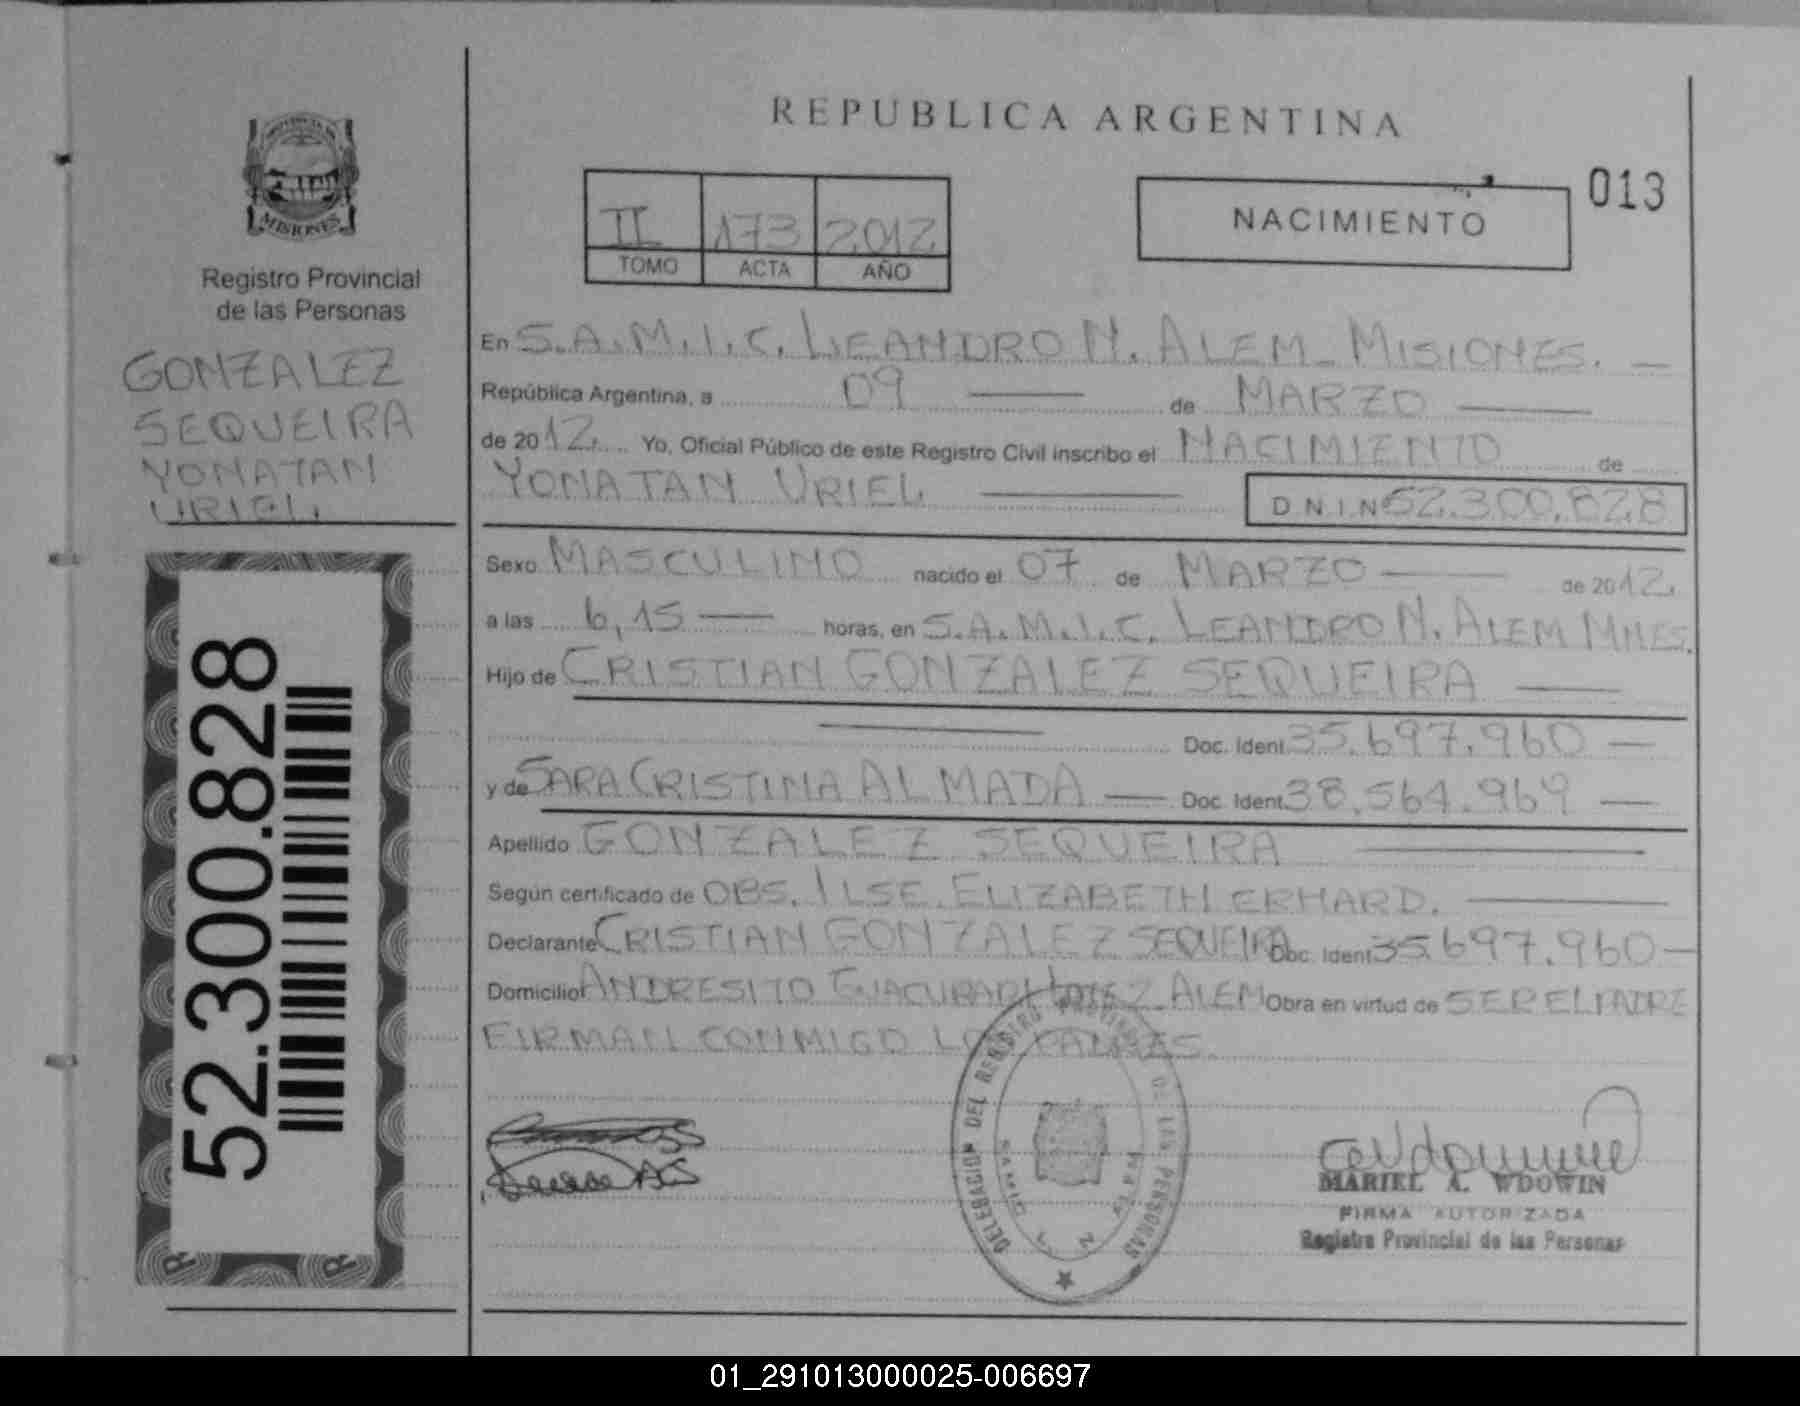 REPUBLICA ARGENTINA
013
II 173 2012
TOMO ACTA AÑO
NACIMIENTO
MISIONES
Registro Provincial
de las Personas
GONZALEZ
SEQUEIRA
YONATAN
URIEL.
52.300.828
En S.A.M.I.C. LEANDRO N. ALEM - MISIONES.
República Argentina, a 09 de MARZO
de 2012. Yo, Oficial Público de este Registro Civil inscribo el NACIMIENTO de
YONATAN URIEL D.N.I.Nº 52.300.828
Sexo MASCULINO nacido el 07 de MARZO de 2012.
a las 6,15 horas, en S.A.M.I.C. LEANDRO N. ALEM MNES.
Hijo de CRISTIAN GONZALEZ SEQUEIRA
Doc. Ident. 35.697.960
y de SARA CRISTINA ALMADA Doc. Ident. 38.564.969
Apellido GONZALEZ SEQUEIRA
Según certificado de OBS. ILSE ELIZABETH ERHARD.
Declarante CRISTIAN GONZALEZ SEQUEIRA Doc. Ident. 35.697.960
Domicilio ANDRESITO GUACURARI ALEM Obra en virtud de SER EL PADRE
FIRMAN CONMIGO LOS PADRES.
DELEGACION DEL REGISTRO PROVINCIAL DE LAS PERSONAS
MARIEL A. WDOWIN
FIRMA AUTORIZADA
Registro Provincial de las Personas
01_291013000025-006697